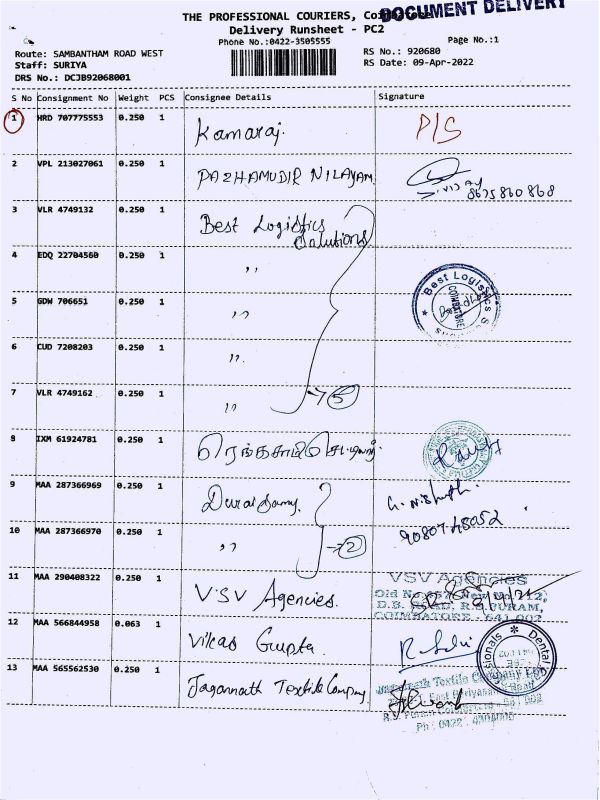 THE PROFESSIONAL COURIERS, Coimbatore
DOCUMENT DELIVERY
Delivery Runsheet - PC2
Phone No.:0422-3505555
Page No.:1
Route: SAMBANTHAM ROAD WEST
RS No.: 920680
Staff: SURIYA
RS Date: 09-Apr-2022
DRS No.: DCJB92068001
S No Consignment No Weight PCS Consignee Details Signature
1 HRD 707775553 0.250 1 Kamaraj. P/S
2 VPL 213027061 0.250 1 PAZHAMUDIR NILAYAM 8675860868
3 VLR 4749132 0.250 1 Best Logistics Solutions
4 EDQ 22704560 0.250 1 ,, Best Logistics COIMBATORE
5 GDW 706651 0.250 1 ,,
6 CUD 7208203 0.250 1 ,,
7 VLR 4749162 0.250 1 ,, → 5
8 IXM 61924781 0.250 1 ரெங்கசாமி செட்டியார்
9 MAA 287366969 0.250 1 Duraisamy.
10 MAA 287366970 0.250 1 ,, → 2
11 MAA 290408322 0.250 1 VSV Agencies. VSV Agencies
D.B. ROAD, R.S. PURAM,
COIMBATORE - 641 002
12 MAA 566844958 0.063 1 Vikas Gupta. Dental
13 MAA 565562530 0.250 1 Jagannath Textile Company Textile Company